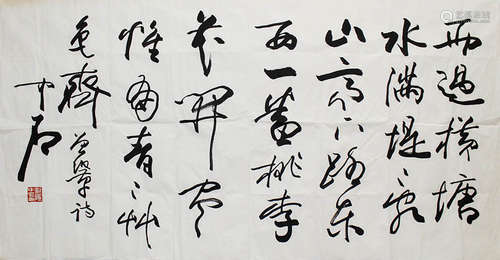 雨過橫塘
水滿堤亂
山高下路東
西一番桃李
花開盡
惟有青〻艸
色齊 曾鞏詩
中石